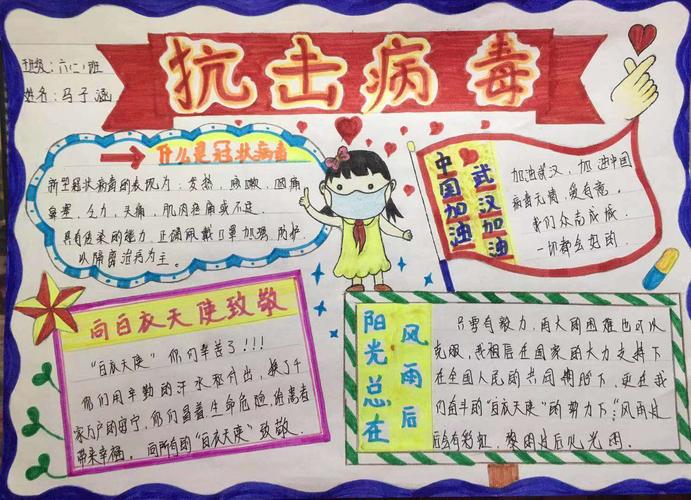 抗击病毒
班级：六(二)班
姓名：马子涵
什么是冠状病毒
新型冠状病毒的表现为：发热，咳嗽，咽痛
鼻塞，乏力，头痛，肌肉酸痛或不适
具有传染的能力，正确佩戴口罩加强防护
以隔离治病为主。
中国加油
武汉加油
加油武汉，加油中国
病毒无情，爱有意。
我们众志成城
一切都会好的
向白衣天使致敬
"白衣天使"你们辛苦了!!!
你们用辛勤的汗水和付出，换了千
家万户的安宁，你们冒着生命危险，给患者
带来幸福。向所有的"白衣天使"致敬
阳光总在
风雨后
只要有毅力，再大的困难也可以
克服，我相信在国家的大力支持下
在全国人民的共同期盼下，更在我
们奋斗的"白衣天使"的努力下。"风雨过
后会有彩虹，黎明过后见光明。